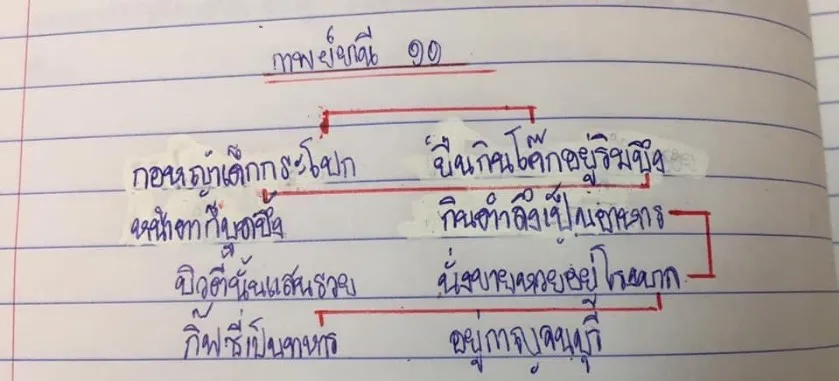 กาพย์ยานี ๑๑
กอหญ้าเด็กกระโปก ยืนกินโค๊กอยู่ริมบึง
หน้าตาก็บูดบึ้ง กินตำลึงเป็นอาหาร
บิวตี้นั้นแสนรวย นั่งขายหวยอยู่โรงบาล
กิ๊ฟซี่เป็นทหาร อยู่กาญจนบุรี